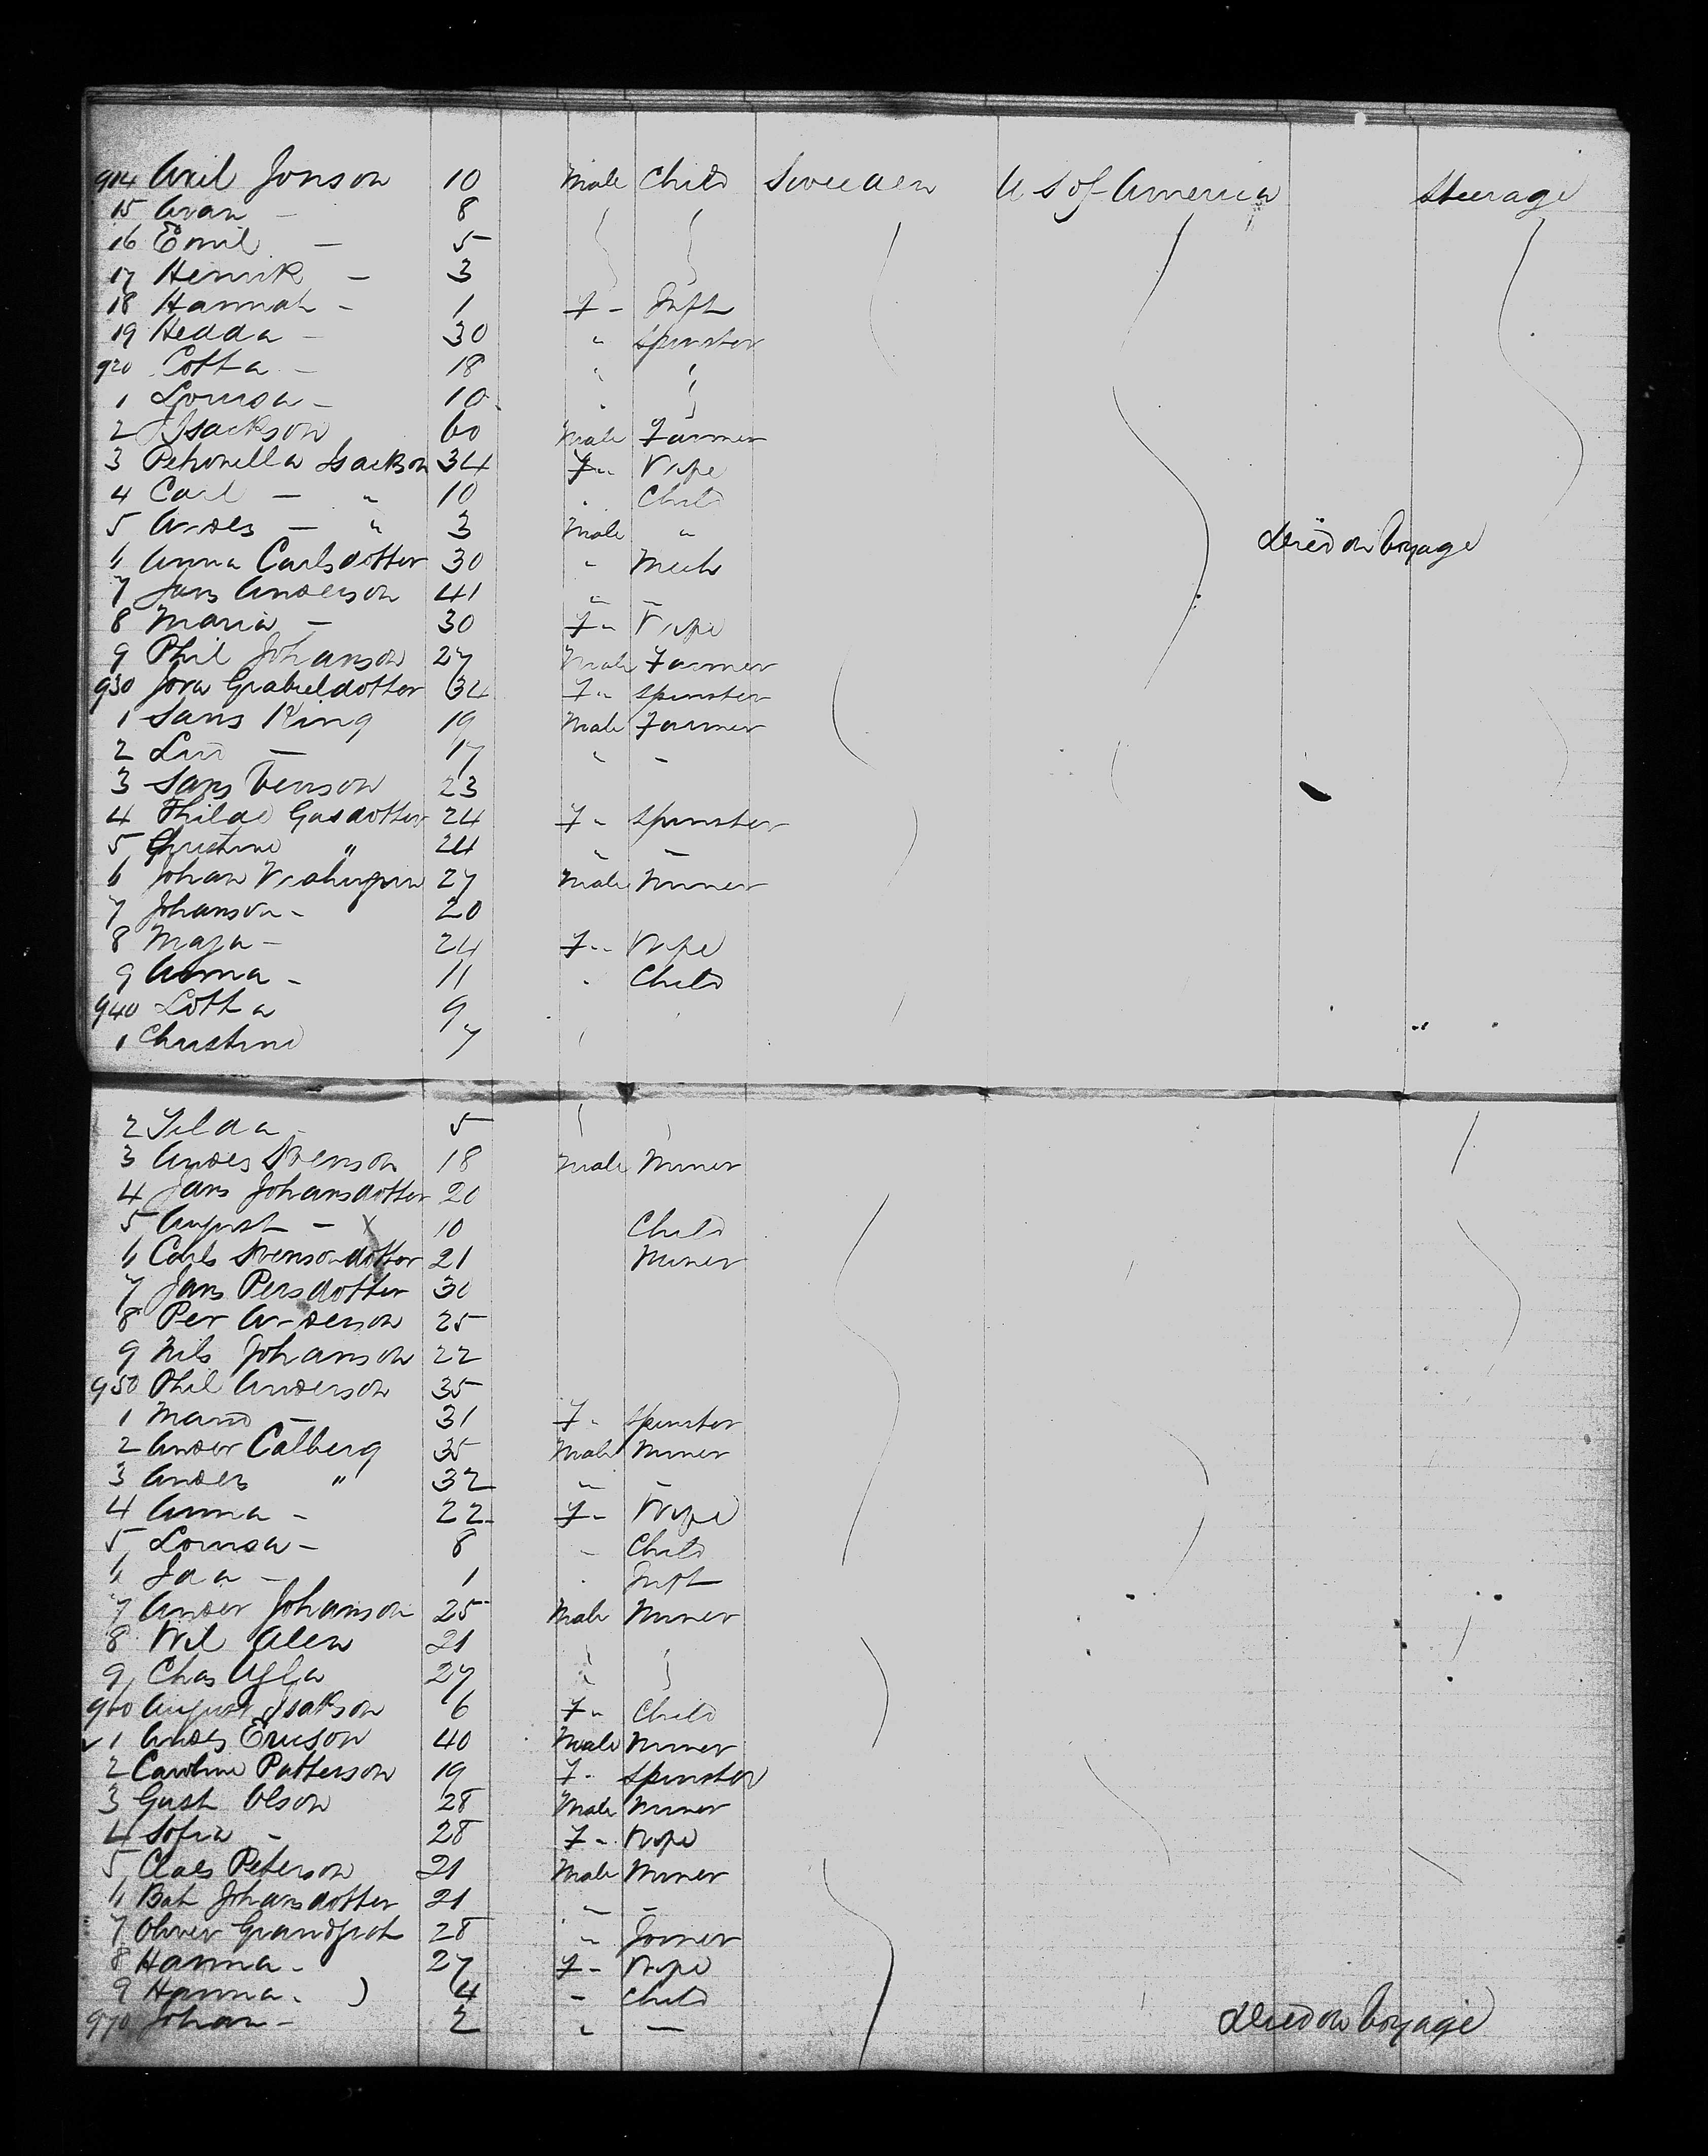 914 Axel Jonson 10 Male Child Sweden U S of America Steerage
15 - 8
16 Emil - 5
17 Henrik - 3
18 Hannah - 1 F - Inft
19 Hedda - 30 " Spinster
920 Lotta - 18
1 Louisa - 10
2 J Isackson 60 Male Farmer
3 Petronella Isackson 34 F " Wife
4 Carl - " 10 Child
5 Andes - " 3 Male "
6 Anna Carlsdotter 30 " Mech
7 Jans Anderson 41 " -
8 Maria - 30 F " Wife
9 Phil Johanson 27 Male Farmer
930 Jora Grabieldotter 34 F " Spinster
1 Sans King 19 Male Farmer
2 - 17 " -
3 Sans Venson 23
4 Thilda Gusdotter 24 F " Spinster
5 Christine " 24 " -
6 Johan 27 Male Miner
7 Johanson - 20
8 Maja - 24 F " Wife
9 Anna - 11 " Child
940 Lotta 9
1 Christine 7
2 Tilda - 5
3 Andes Svenson 18 Male Miner
4 Jans Johansdotter 20
5 August - X 10 Child
6 Carls Svensondotter 21 Miner
7 Jans Persdotter 30
8 Per Anderson 25
9 Nils Johanson 22
950 Phil Anderson 35
1 Maria - 31 F " Spinster
2 Ander Calberg 35 Male Miner
3 Andes " 32 " -
4 Anna - 22 F - Wife
5 Louisa - 8 - Child
6 Ida - 1 " Inft
7 Ander Johanson 25 Male Miner
8 Wil Alen 21
9 Chas Ugla 27 "
960 August Isakson 6 F " Child
1 Andes Ericson 40 Male Miner
2 Caroline Patterson 19 F " Spinster
3 Gust Olson 28 Male Miner
4 Sofia - 28 F " Wife
5 Claes Peterson 21 Male Miner
6 Bat Johansdotter 21 " -
7 Oliver 28 " Joiner
8 Hanna - 27 F - Wife
9 Hanna - ) 4 - Child
970 Johan - 2 " - Died on Voyage
Died on Voyage